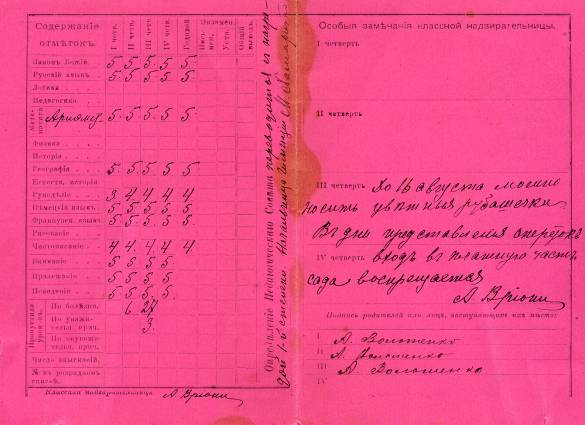 Содержаніе отмѣтокъ.
I четв.
II четв.
III четв.
IV четв.
Годовой.
Экзамен.
Письмен.
Устн.
Общій выводъ.
Законъ Божій. 5. 5. 5. 5. 5
Русскій языкъ. 5. 5. 5. 5. 5
Логика
Педагогика
Математика Ариөме 5. 5. 5. 5. 5
Физика
Исторія
Географія 5. 5. 5. 5. 5
Естеств. исторія
Рукодѣліе 3 4 4 4 4
Нѣмецкій языкъ. 5 5 5 5 5
Француз. языкъ 5 5 5 5 5
Рисованіе
Чистописаніе 4 4 4 4 4
Вниманіе 5 5 5 5
Прилежаніе 5 5 5 5
Поведеніе 5 5 5 5
Пропустила уроковъ.
По болѣзни. 6 27
По уважительн. прич. 3
По неуважительн. прич.
Число взысканій.
№ въ разрядномъ спискѣ.
Классная надзирательница А Вріони
Опредѣленіе Педагогическаго Совѣта переводится съ награ
дой 1-й степени. Начальница гимназіи
Особыя замѣчанія классной надзирательницы.
I четверть
II четверть
III четверть До 16 августа можно
носить цвѣтныя рубашечки
В дни представленія опереток
IV четверть входъ въ платную часть
сада воспрещается
А Вріони
Подпись родителей или лица, заступающаго ихъ мѣсто:
I А. Волошенко
II А. Волошенко
III А. Волошенко
IV